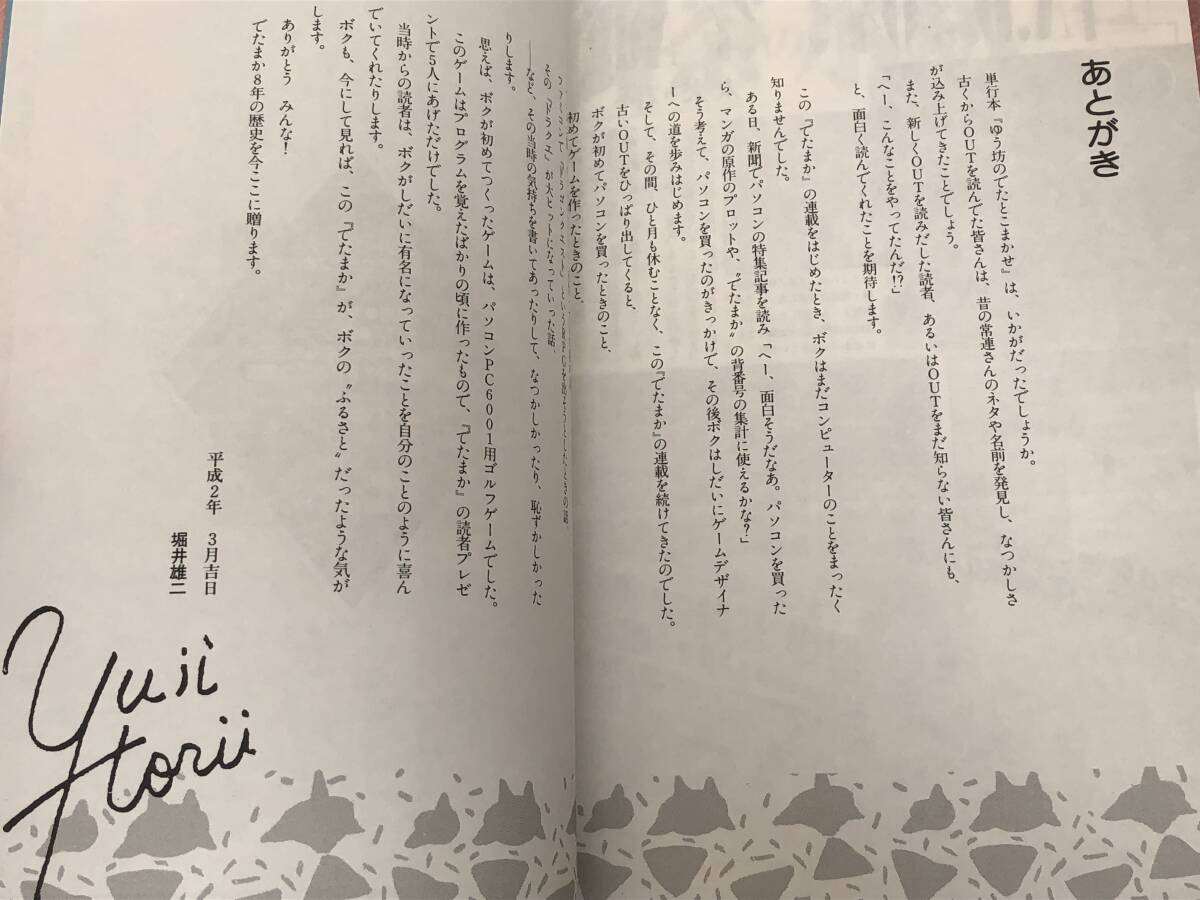 あとがき
単行本『ゆう坊のでたとこまかせ』は、いかがだったでしょうか。
古くからOUTを読んでた皆さんは、昔の常連さんのネタや名前を発見し、なつかしさ
が込み上げてきたことでしょう。
また、新しくOUTを読みだした読者、あるいはOUTをまだ知らない皆さんにも、
「へー、こんなことをやってたんだ!?」
と、面白く読んでくれたことを期待します。
この『でたまか』の連載をはじめたとき、ボクはまだコンピューターのことをまったく
知りませんでした。
ある日、新聞でパソコンの特集記事を読み「へー、面白そうだなあ。パソコンを買った
ら、マンガの原作のプロットや、〝でたまか〟の背番号の集計に使えるかな?」
そう考えて、パソコンを買ったのがきっかけで、その後、ボクはしだいにゲームデザイナ
ーへの道を歩みはじめます。
そして、その間、ひと月も休むことなく、この『でたまか』の連載を続けてきたのでした。
古いOUTをひっぱり出してくると、
ボクが初めてパソコンを買ったときのこと、
初めてゲームを作ったときのこと、
その『ドラクエ』が大ヒットになっていった話、
――など、その当時の気持ちを書いてあったりして、なつかしかったり、恥ずかしかった
りします。
思えば、ボクが初めてつくったゲームは、パソコンPC6001用ゴルフゲームでした。
このゲームはプログラムを覚えたばかりの頃に作ったもので、『でたまか』の読者プレゼ
ントで5人にあげただけでした。
当時からの読者は、ボクがしだいに有名になっていったことを自分のことのように喜ん
でいてくれたりします。
ボクも、今にして見れば、この『でたまか』が、ボクの〝ふるさと〟だったような気が
します。
ありがとう みんな!
でたまか8年の歴史を今ここに贈ります。
平成2年 3月吉日
堀井雄二
Yuji
Horii